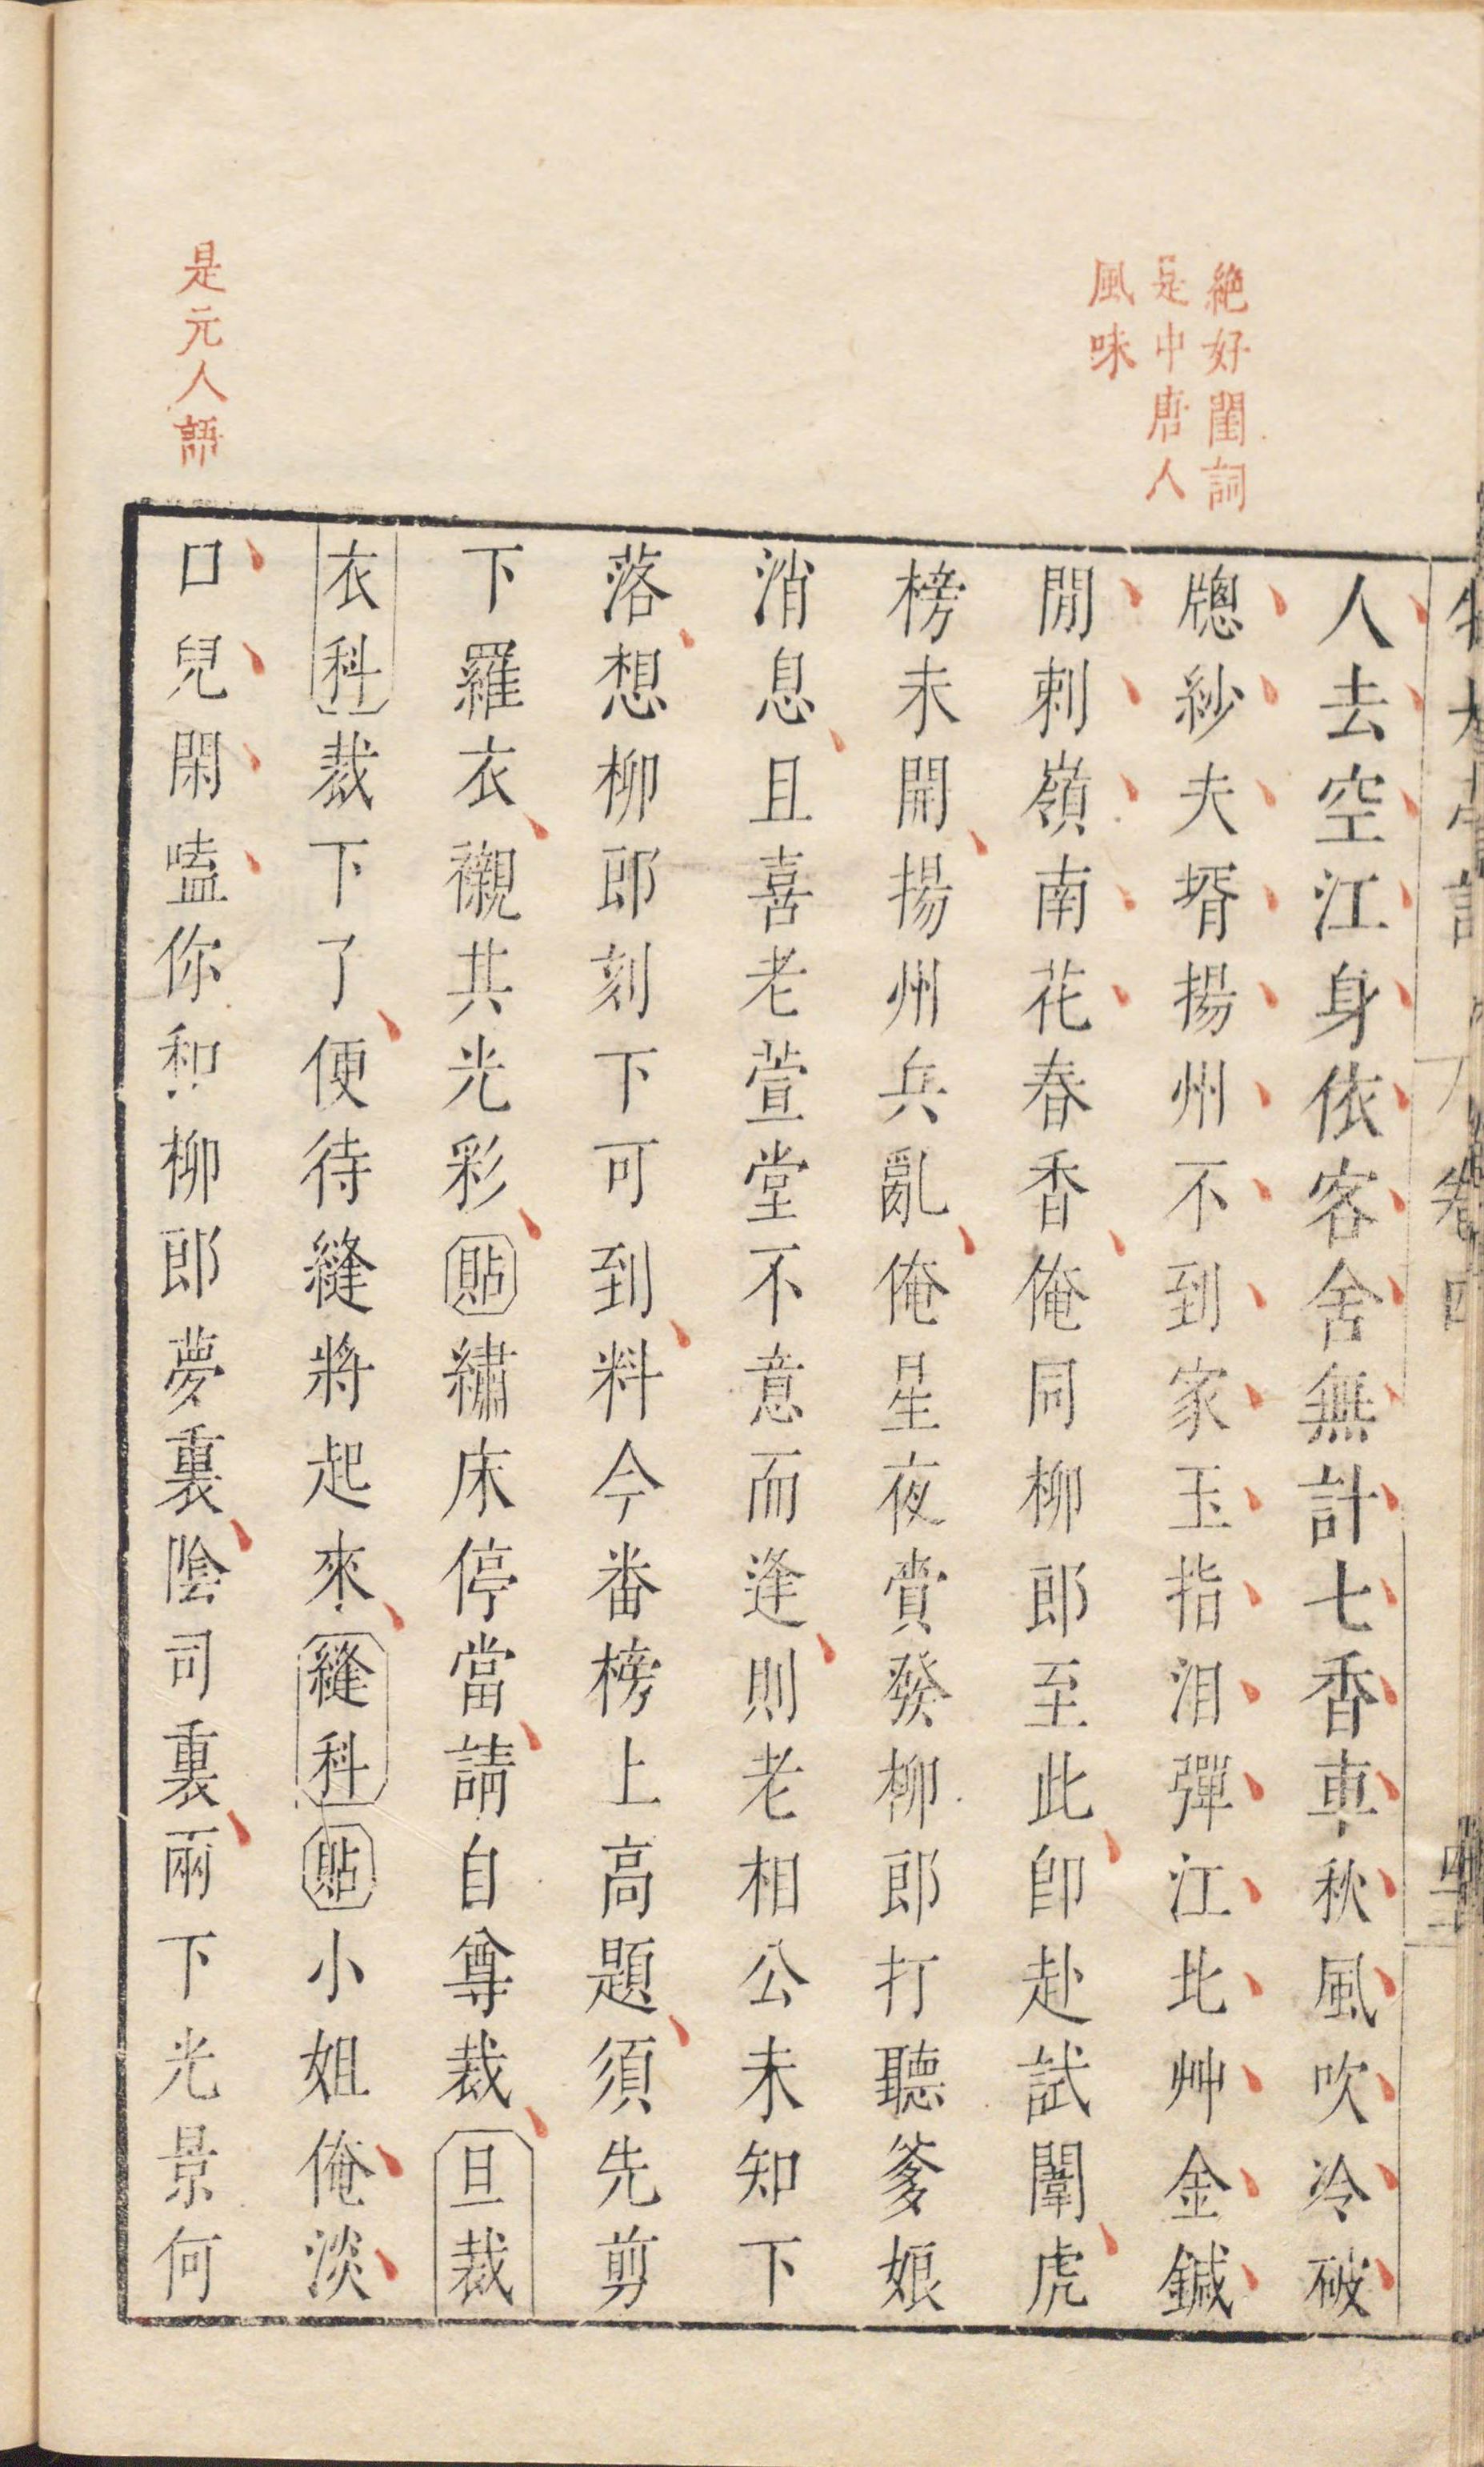 絶好閨詞
是中唐人
風味
是元人語
人去空江身依客舍無計七香車秋風吹冷破
牕紗夫壻揚州不到家玉指泪彈江北艸金鍼
閒刺嶺南花春香俺同柳郎至此卽赴試闈虎
榜未開揚州兵亂俺星夜賫發柳郎打聽爹娘
消息且喜老萱堂不意而逢則老相公未知下
落想柳郎刻下可到料今番榜上高題須先剪
下羅衣襯共光彩貼繡床停當請自尊裁旦裁
衣科裁下了便待縫將起來縫科貼小姐俺淡
口兒閑嗑你和柳郎夢裏陰司裏兩下光景何